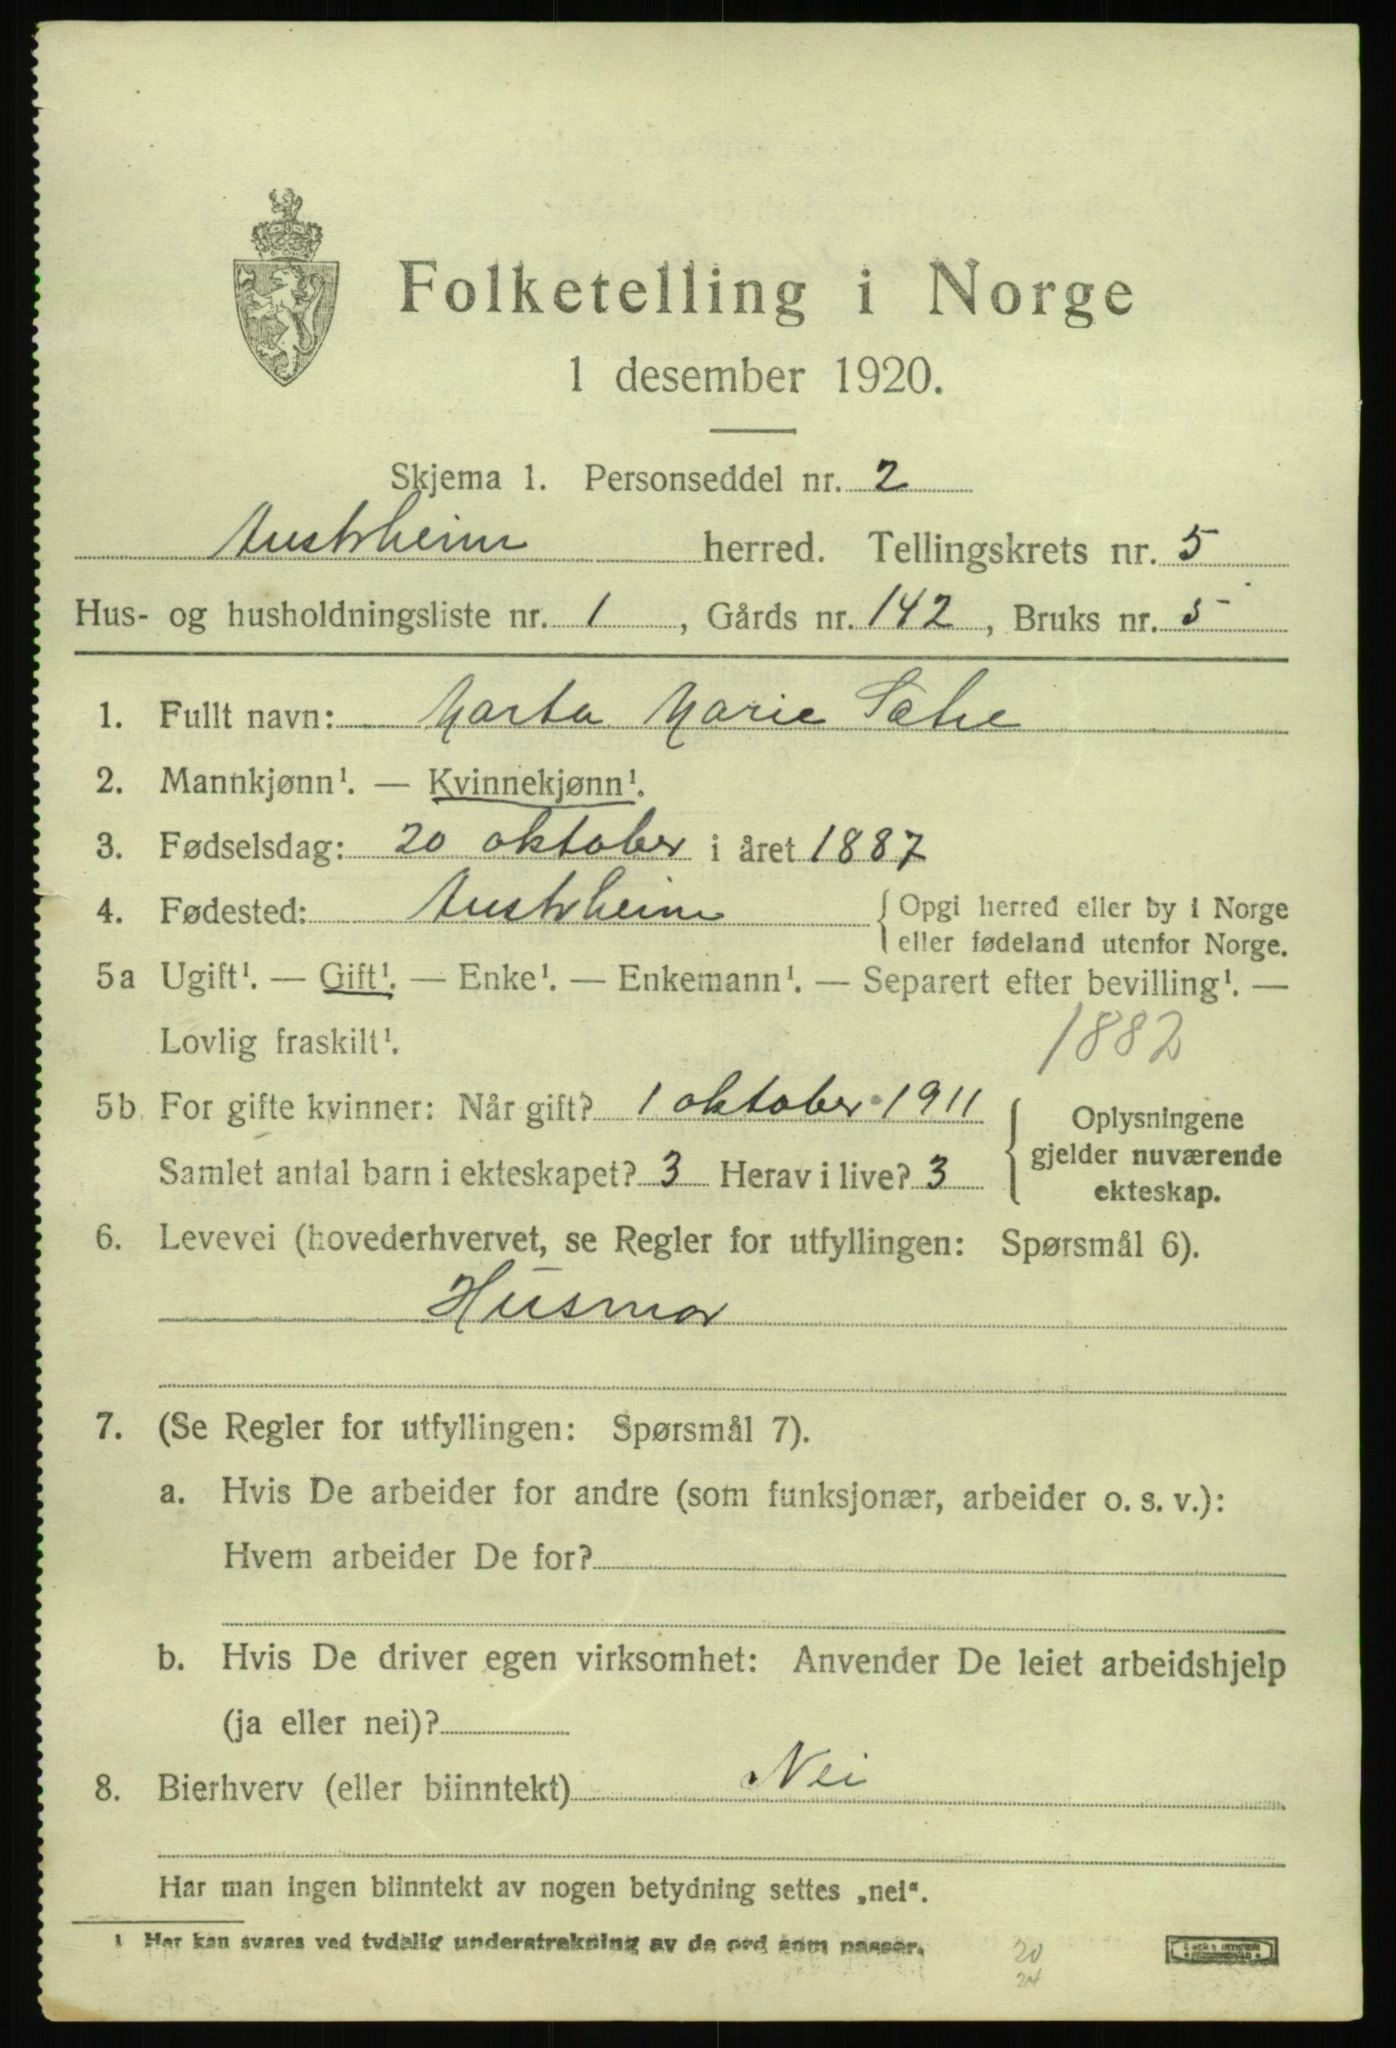 Folketelling i Norge
1 desember 1920.
Skjema 1. Personseddel nr. 2
Austrheim herred. Tellingskrets nr. 5
Hus- og husholdningsliste nr. 1, Gårds nr. 142, Bruks nr. 5
1. Fullt navn: Marta Marie Sætre
2. Mannkjønn¹. — Kvinnekjønn¹.
3. Fødselsdag: 20 oktober i året 1887
4. Fødested: Austrheim { Opgi herred eller by i Norge
eller fødeland utenfor Norge.
5a Ugift¹. — Gift¹. — Enke¹. — Enkemann¹. — Separert efter bevilling¹. —
Lovlig fraskilt¹. 1882
5b For gifte kvinner: Når gift? 1 oktober 1911
Samlet antal barn i ekteskapet? 3 Herav i live? 3
{ Oplysningene
gjelder nuværende
ekteskap.
6. Levevei (hovederhvervet, se Regler for utfyllingen: Spørsmål 6).
Husmor
7. (Se Regler for utfyllingen: Spørsmål 7).
a. Hvis De arbeider for andre (som funksjonær, arbeider o. s. v.):
Hvem arbeider De for?
b. Hvis De driver egen virksomhet: Anvender De leiet arbeidshjelp
(ja eller nei)?
8. Bierhverv (eller biinntekt) Nei
Har man ingen biinntekt av nogen betydning settes „nei“.
¹ Her kan svares ved tydelig understrekning av de ord som passer.
20
24